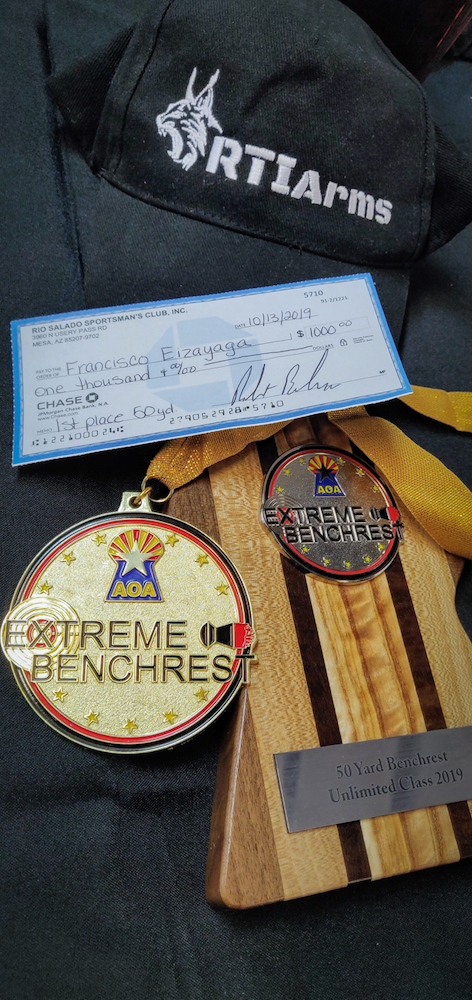 RTIArms
5710
91-2/1221
RIO SALADO SPORTSMAN'S CLUB, INC.
3960 N USERY PASS RD
MESA, AZ 85207-9702
DATE 10/13/2019
PAY TO THE
ORDER OF Francisco Eizayaga $ 1000.00
one thousand + 00/00 DOLLARS
CHASE
JPMorgan Chase Bank, N.A.
www.chase.com
1st place 50yd
AOA
EXTREME
BENCHREST
AOA
EXTREME
BENCHREST
50 Yard Benchrest
Unlimited Class 2019